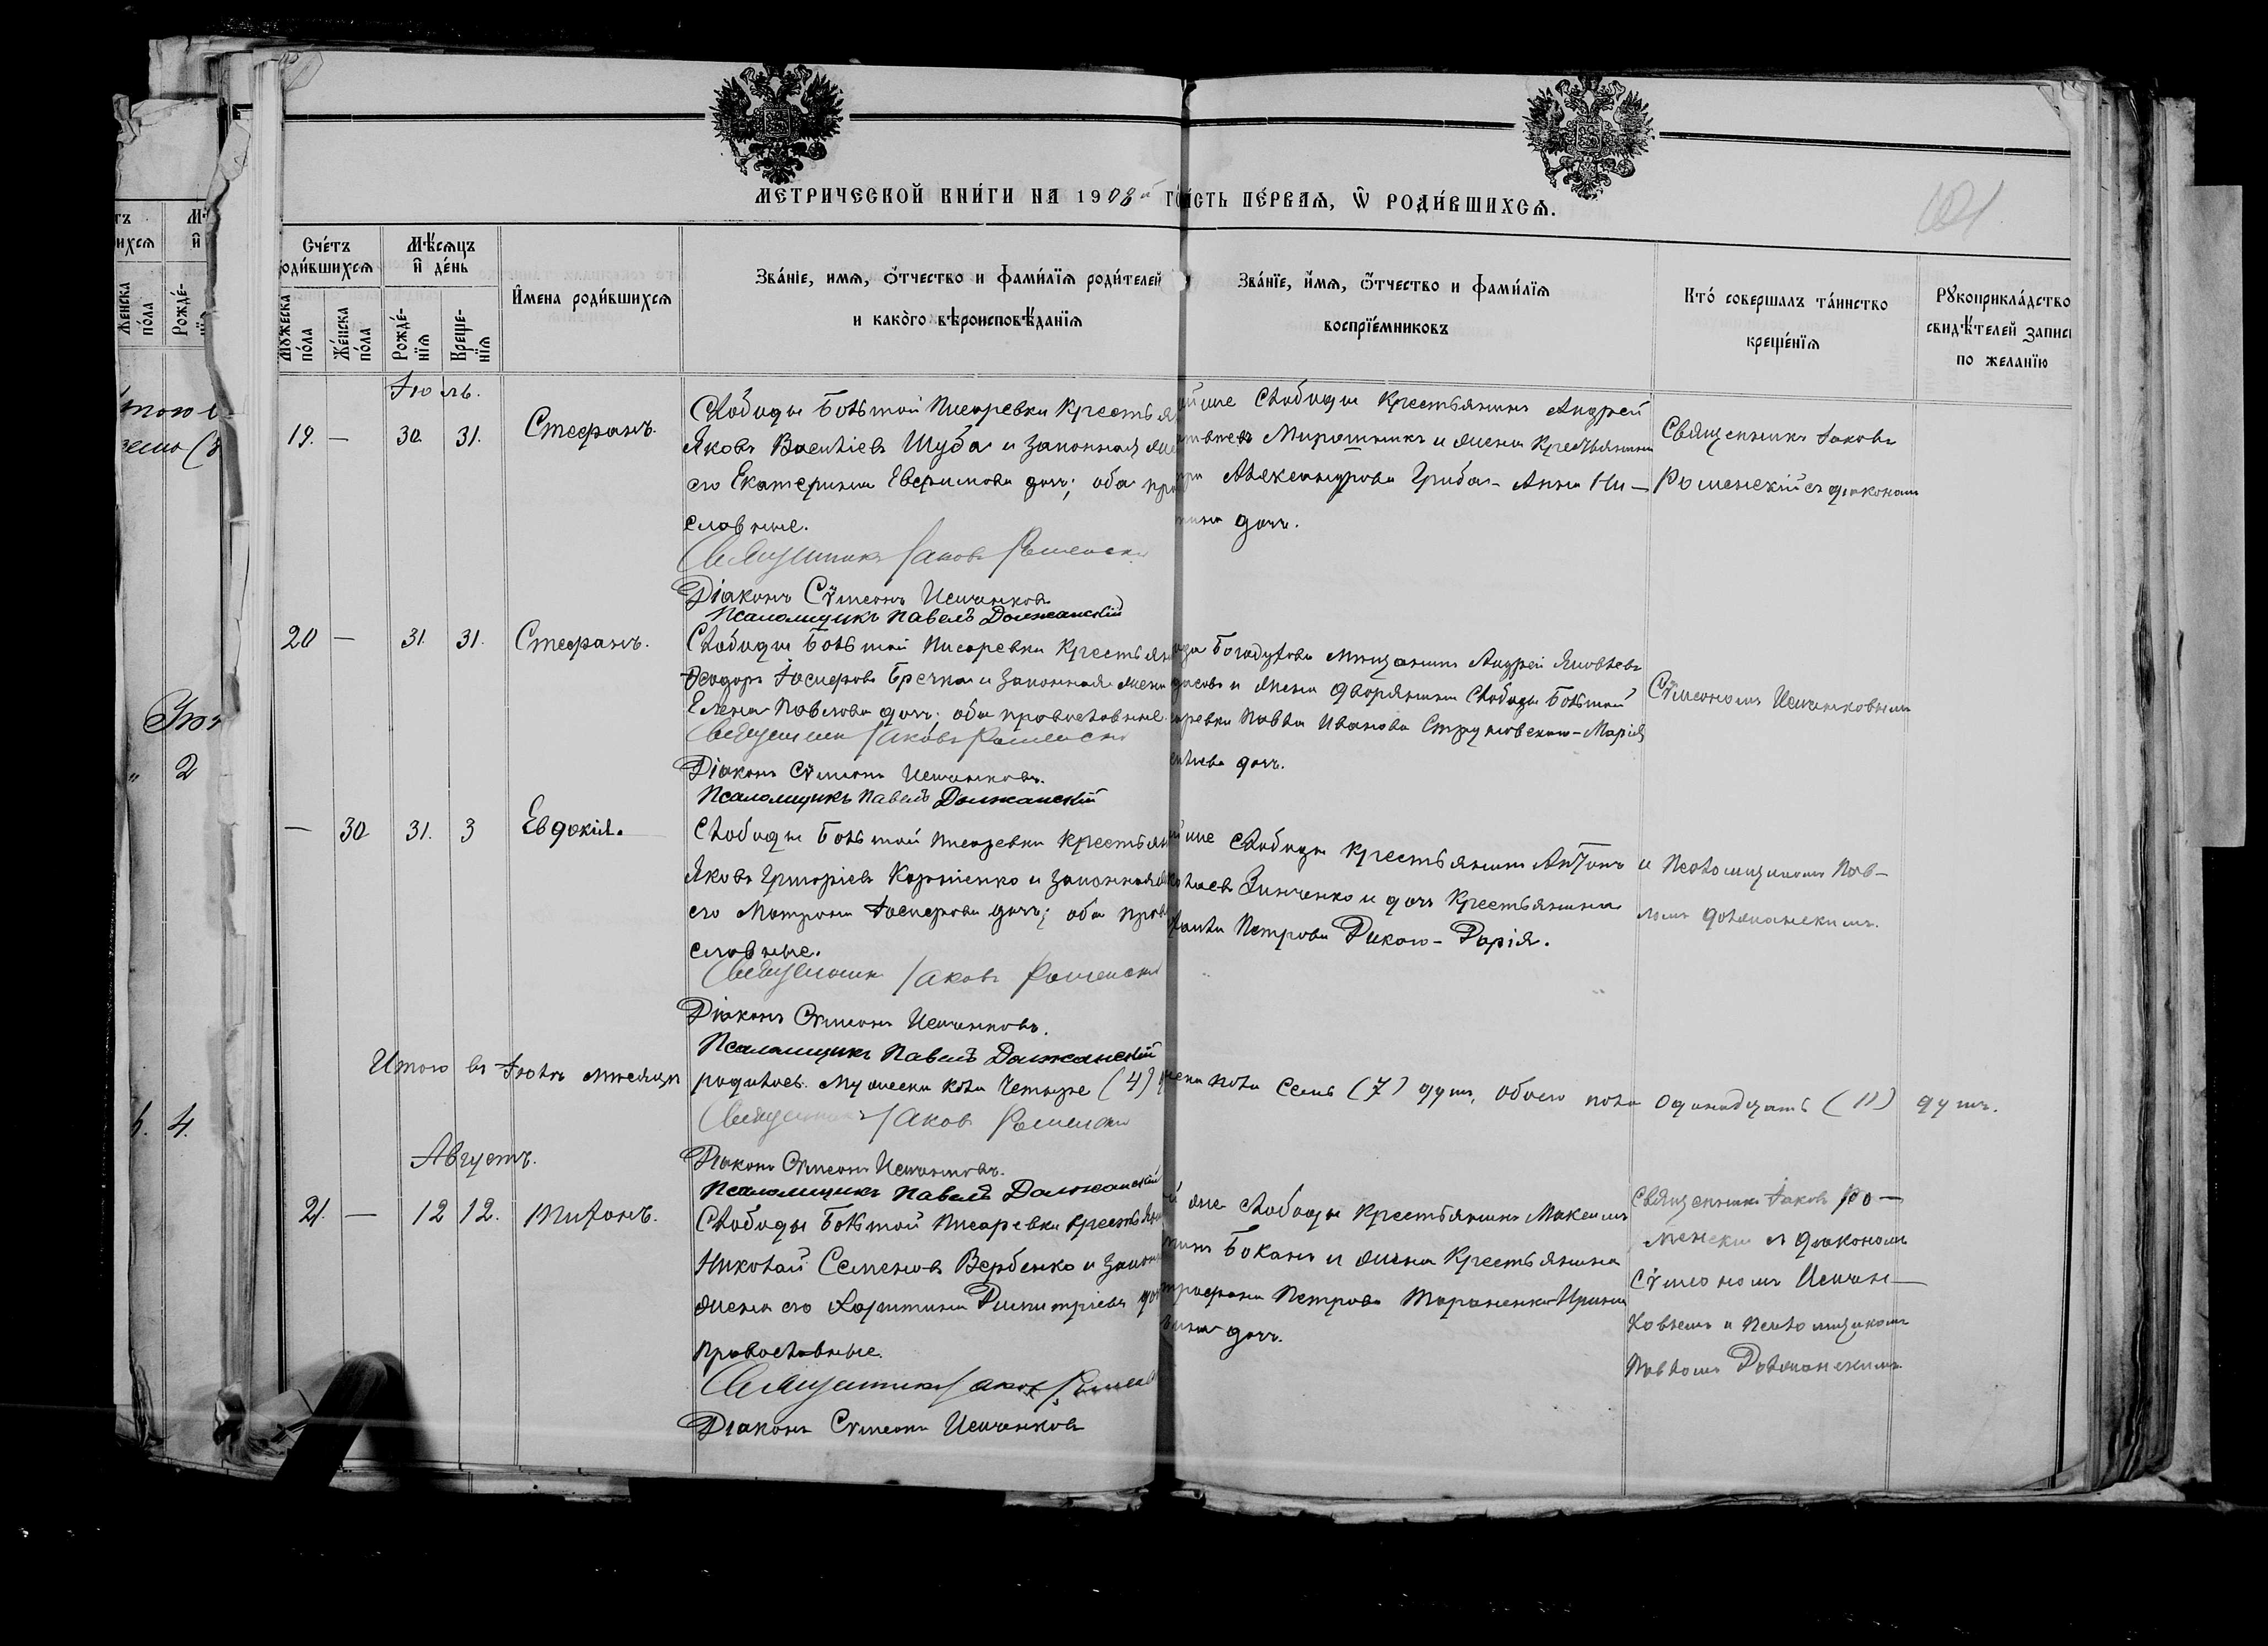 МЕТРИЧЕСКОЙ КНИ́ГИ НА 1908й ЧА́СТЬ ПЕ́РВАѦ, Ѡ҆ РОДИ́ВШИХСѦ.
Счéтъ роди́вшихсѧ
Мѣ́сѧцъ и҆ дéнь
И҆мена роди́вшихсѧ
Звáнїе, имѧ, ѻ҆́тчество и фами́лїѧ роди́телей и какòго вѣроисповѣ́данїѧ
Звáнїе, и҆́мѧ, ѻ҆́тчество и фами́лїѧ воспрїе́мниковъ
Ктó совершалъ тáинство крещéнїѧ
Рꙋкоприклáдство свидѣ́телей запис
по желанїю
Мꙋжеска пóла
Жéнска пóла
Рождé-нїѧ
Креще-нїѧ
Іюль.
19. — 30. 31. Стефанъ.
Слободы Большой Писаревки Крестьян
Яковъ Васильевъ Шуба и законная же
его Екатерина Евфимова дочь; оба пра
славные.
Священникъ Іаковъ Роменскі
Діаконъ Сѵмеонъ Иешенковъ
Псаломщикъ Павелъ Должанскій
ой же Слободы Крестьянинъ Андрей
Мирошникъ и жена Крестьянина
Александрова Гриба - Анна Ни-
дочь.
Священникъ Іаковъ
Роменскій съ діакономъ
20 — 31. 31. Стефанъ.
Слободы Большой Писаревки Крестьян
Ѳеодоръ Іосифовъ Бречка и законная жена
Елена Павлова дочь; оба православные.
Священникъ Іаковъ Роменскі
Діаконъ Сѵмеонъ Иешенковъ.
Псаломщикъ Павелъ Должанскій
Богодухова мѣщанинъ Андрей Яковлевъ
и жена дворянина Слободы Большой
саревки Павла Иванова Струковскаго - Марія
дочь.
Сѵмеономъ Иешенковымъ
— 30. 31. 3 Евдокія.
Слободы Большой Писаревки Крестьян
Яковъ Григоріевъ Корніенко и законная
его Матрона Іосифова дочь; оба право
славные.
Священникъ Іаковъ Роменскі
Діаконъ Сѵмеонъ Иешенковъ.
Псаломщикъ Павелъ Должанскій
же Слободы Крестьянинъ Антонъ
Зинченко и дочь Крестьянина
Петрова Дикого - Дарія.
и Псаломщикомъ Пав-
ломъ Должанскимъ.
Итого въ Іюлѣ мѣсяцѣ родилось. Мужеска пола Четыре (4) жена пола Семь (7) душъ, обоего пола Одинадцать (11) душъ.
Священникъ Іаковъ Роменскі
Діаконъ Сѵмеонъ Иешенковъ.
Псаломщикъ Павелъ Должанскій
Августъ.
21. — 12 12. Тихонъ.
Слободы Большой Писаревки Крестьян
Николай Семеновъ Вербенко и закон
жена его Харитина Димитріева доч
православные.
Священникъ Іаковъ Роменск
Діаконъ Сѵмеонъ Иешенковъ
же Слободы Крестьянинъ Максимъ
Боканъ и жена Крестьянина
трофана Петрова Тараненка - Ирина
дочь.
Священникъ Іаковъ Ро-
менскій съ діакономъ
Сѵмеономъ Иешен-
ковымъ и Псаломщикомъ
Павломъ Должанскимъ